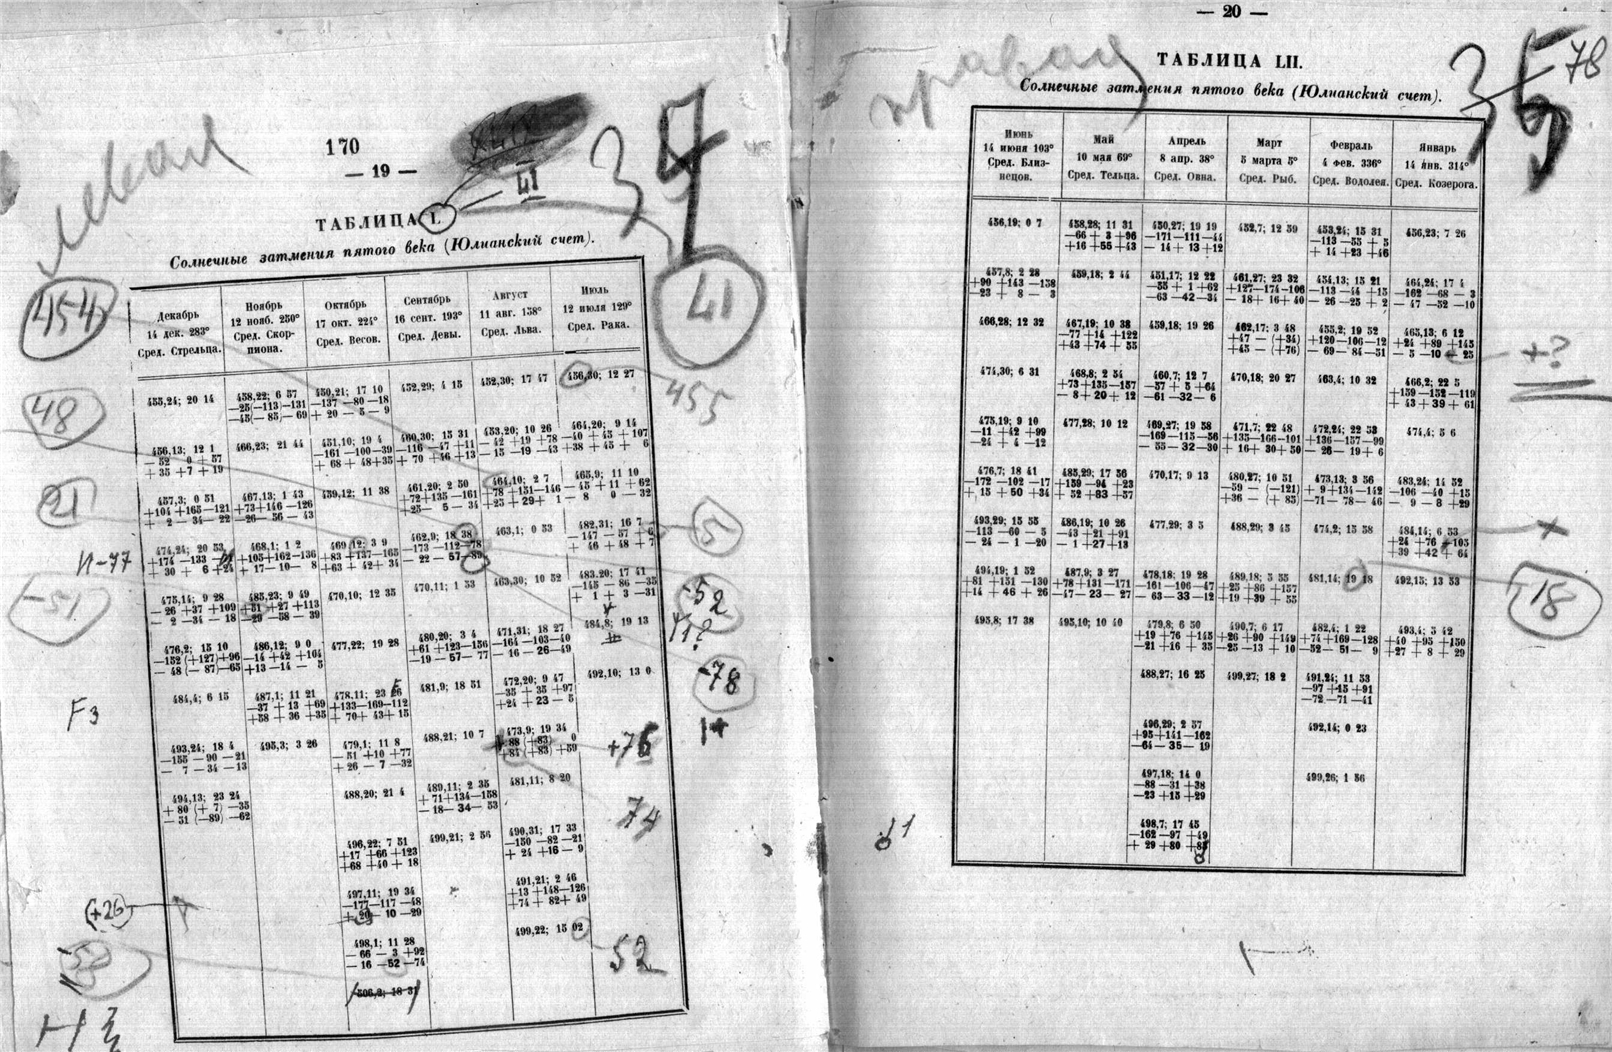 170
— 19 —
левая
41
34
ТАБЛИЦА L
Солнечные затмения пятого века (Юлианский счет).
454
48
21
И-77
-51
F3
(+26)
-52
41
455
5
-52
-78
+76
74
52
Декабрь
14 дек. 283°
Сред. Стрельца.
455,24; 20 14
456,13; 12 1
— 52 0 +57
+ 35 + 7 + 19
457,3; 0 51
+104 +165 —121
+ 2 — 34 — 22
474,24; 20 53
+174 —133
+ 30 + 6 +24
475,14; 9 28
— 26 +37 +109
— 2 —34 — 18
476,2; 15 10
—152 (+127) +96
— 48 (— 87) —65
484,4; 6 15
493,24; 18 4
—155 —90 —21
— 7 —34 —13
494,13; 23 24
+ 80 (+ 7) —35
— 51 (—89) —62
Ноябрь
12 нояб. 250°
Сред. Скор-
пиона.
458,22; 6 57
—25(—113)—131
—45(— 85 — 69
466,23; 21 44
467,13; 1 43
+73 +146 —126
—26 —56 — 43
468,1; 1 2
+105+162—136
+ 17 —10 — 8
485,23; 9 49
+51 +27 +113
—29 —58 — 39
486,12; 9 0
—14 +42 +104
+13 —14 — 5
487,1; 11 21
—37 + 13 +69
+58 + 36 +35
495,3; 3 26
Октябрь
17 окт. 224°
Сред. Весов.
450,21; 17 10
—137 —80 —18
+ 20 — 5 — 9
451,10; 19 4
—161 —100 —39
+ 68 + 48+35
459,12; 11 38
469,12; 3 9
+83 +137—165
+63 + 42+ 34
470,10; 12 35
477,22; 19 28
478,11; 23 26
+133—169—112
+ 70+ 43+ 15
479,1; 11 8
— 51 +10 +77
+ 26 — 7 —32
488,20; 21 4
496,22; 7 51
+17 +66 +123
+68 +40 + 18
497,11; 19 34
—177—117 —48
+ 20 — 10 —29
498,1; 11 28
— 66 — 3 +92
— 16 —52 —74
506,2; 18 31
Сентябрь
16 сент. 193°
Сред. Девы.
452,29; 4 15
460,30; 15 31
—116 —47 +11
+ 70 +46 +13
461,20; 2 50
+72+135 —161
+25— 5 — 34
462,9; 18 38
—173 —112—78
— 22 — 57—89
470,11; 1 53
480,20; 3 4
+61 +123—156
—19 — 57— 77
481,9; 18 51
488,21; 10 7
489,11; 2 35
+ 71+134—158
— 18— 34— 53
499,21; 2 56
Август
11 авг. 158°
Сред. Льва.
452,30; 17 47
453,20; 10 26
— 42 +19 +78
— 15 —19 —43
464,10; 2 7
+78 +151—146
+25 + 29+ 1
463,1; 0 53
463,30; 10 52
471,31; 18 27
—164 —103—40
— 16 — 26—49
472,20; 9 47
—35 + 35 +97
+24 + 23 — 5
473,9; 19 34
+88 (+83) 0
+84 (+83) +59
481,11; 8 20
490,31; 17 33
—150 —82 —21
+ 24 +16 — 9
491,21; 2 46
+13 +148—126
+74 + 82+ 49
499,22; 15 02
Июль
12 июля 129°
Сред. Рака.
456,30; 12 27
464,20; 9 14
—40 + 45 +107
+38 + 45 + 6
465,9; 11 10
—45 + 11 +62
— 8 0 — 32
482,31; 16 7
—147 — 57 + 6
+ 46 + 48 + 7
483,20; 17 41
—145 — 86 —35
+ 1 + 3 —31
484,8; 19 13
492,10; 13 0
— 20 —
правая
35
78
ТАБЛИЦА LII.
Солнечные затмения пятого века (Юлианский счет).
+?
18
Июнь
14 июня 103°
Сред. Близ-
нецов.
456,19; 0 7
457,8; 2 28
+90 +143 —158
—23 + 8 — 3
466,28; 12 32
474,30; 6 31
475,19; 9 10
—11 +42 +99
—24 + 4 —12
476,7; 18 41
—172 —102 —17
+ 15 + 50 +34
493,29; 15 55
—113 —60 — 5
— 24 — 1 —20
494,19; 1 52
+81 +151 —130
+14 + 46 + 26
495,8; 17 38
Май
10 мая 69°
Сред. Тельца.
458,28; 11 31
—66 + 3 +96
+16 +55 +43
459,18; 2 44
467,19; 10 38
—77 +14 +122
+43 +74 + 55
468,8; 2 54
+73+135—157
— 8+ 20+ 12
477,28; 10 12
485,29; 17 56
+159 —94 +23
+ 52 +83 +57
486,19; 10 26
—43 +21 +91
— 1 +27 +13
487,9; 3 27
+78+131—171
—47— 23— 27
495,10; 10 40
Апрель
8 апр. 38°
Сред. Овна.
450,27; 19 19
—171—111—44
— 14 + 13 +12
451,17; 12 22
—55 + 1 +62
—63 —42 —34
459,18; 19 26
460,7; 12 7
—57 + 5 +64
—61 —32— 6
469,27; 19 58
—169 —115 —56
— 55 —32 —30
470,17; 9 13
477,29; 3 5
478,18; 19 28
—161 —106 —47
— 63 —33 —12
479,8; 6 50
+19 +76 +145
—21 +16 + 35
488,27; 16 25
496,29; 2 57
+95+141—162
—64— 35— 19
497,18; 14 0
—88 —31 +38
—23 +15 +29
498,7; 17 45
—162 —97 +49
+ 29 +80 +83
Март
5 марта 5°
Сред. Рыб.
452,7; 12 59
461,27; 23 32
+127—174—106
— 18+ 16+ 40
462,17; 3 48
+47 — (+34)
+45 — (+76)
470,18; 20 27
471,7; 22 48
+135—166—101
+ 16+ 30+ 50
480,27; 10 51
—59 — (—121)
+36 — (+ 85)
488,29; 3 45
489,18; 5 55
+25 +86 +157
+19 +39 + 55
490,7; 6 17
+26 +90 +149
—25 —13 + 10
499,27; 18 2
Февраль
4 фев. 336°
Сред. Водолея.
453,24; 15 31
—113 —55 + 5
+ 14 +23 +46
454,13; 15 21
—113 —44 +15
— 26 —25 + 2
455,2; 19 52
+120—106—12
— 69— 84—51
463,4; 10 32
472,24; 22 53
+136—157—99
— 26— 19+ 6
473,13; 3 56
+ 9 +134—142
—71 —78— 46
474,2; 15 58
481,14; 19 18
482,4; 1 22
+74 +169—128
—52— 51— 9
491,24; 11 53
—97 +15 +91
—72 —71 —41
492,14; 0 23
499,26; 1 56
Январь
14 янв. 314°
Сред. Козерога.
456,23; 7 26
464,24; 17 4
—162 —68 — 3
— 47 —52 —10
465,13; 6 12
+24 +89 +145
— 5 —10 + 25
466,2; 22 5
+159 —152 —119
+ 43 + 39 + 61
474,4; 5 6
483,24; 14 52
—106 —40 +15
— 9 — 8 +29
484,14; 6 53
+24 +76 +105
+39 +42 + 64
492,15; 13 53
493,4; 5 42
+40 +95 +150
+27 + 8 + 29